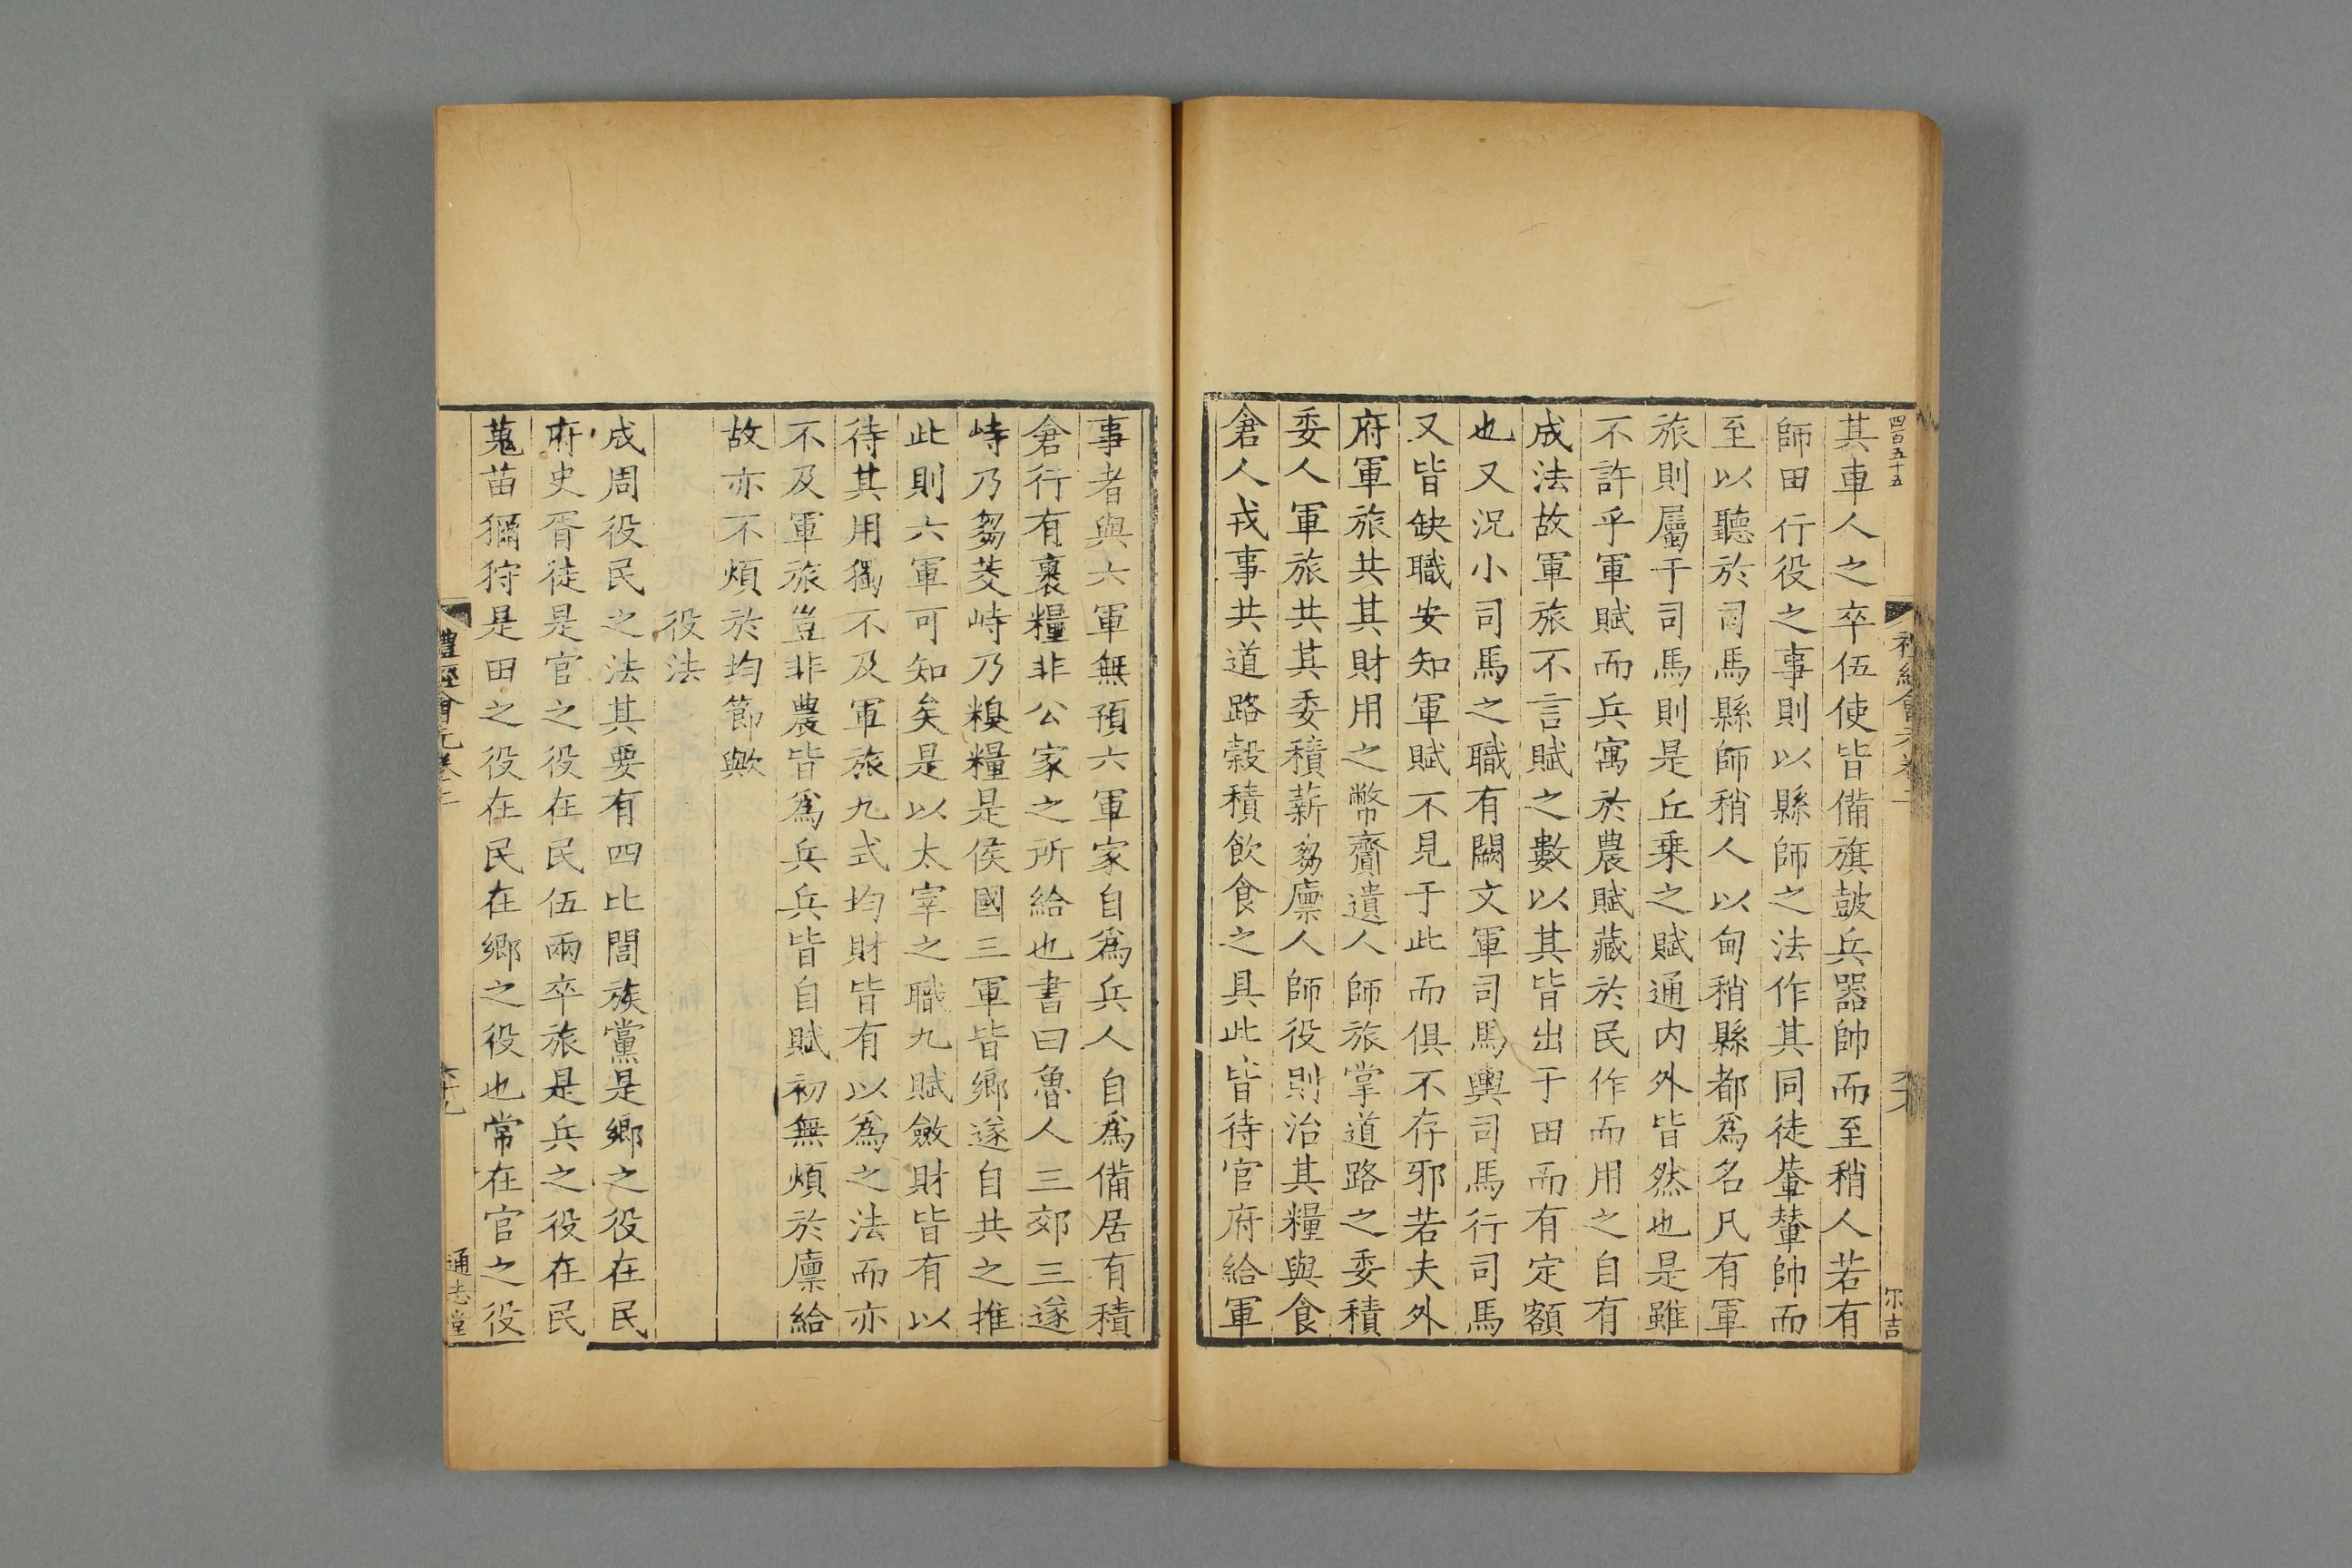 四百五十五
禮經會元卷二
尔吉
其車人之卒伍使皆備旗鼓兵器帥而至稍人若有
師田行役之事則以縣師之法作其同徒輂輦帥而
至以聽於司馬縣師稍人以甸稍縣都爲名凡有軍
旅則屬于司馬則是丘乗之賦通内外皆然也是雖
不許乎軍賦而兵寓於農賦藏於民作而用之自有
成法故軍旅不言賦之數以其皆出于田而有定額
也又況小司馬之職有闕文軍司馬輿司馬行司馬
又皆缺職安知軍賦不見于此而俱不存邪若夫外
府軍旅共其財用之幣齎遺人師旅掌道路之委積
委人軍旅共其委積薪芻廪人師役則治其糧與食
倉人戎事共道路榖積飲食之具此皆待官府給軍
事者與六軍無預六軍家自爲兵人自爲備居有積
倉行有裹糧非公家之所給也書曰魯人三郊三遂
峙乃芻茭峙乃糗糧是侯國三軍皆鄉遂自共之推
此則六軍可知矣是以太宰之職九賦斂財皆有以
待其用獨不及軍旅九式均財皆有以爲之法而亦
不及軍旅豈非農皆爲兵兵皆自賦初無煩於廪給
故亦不煩於均節歟
役法
成周役民之法其要有四比閭族黨是鄉之役在民
府史胥徒是官之役在民伍兩卒旅是兵之役在民
蒐苗獮狩是田之役在民在鄉之役也常在官之役
禮經會元卷二
六十九
通志堂